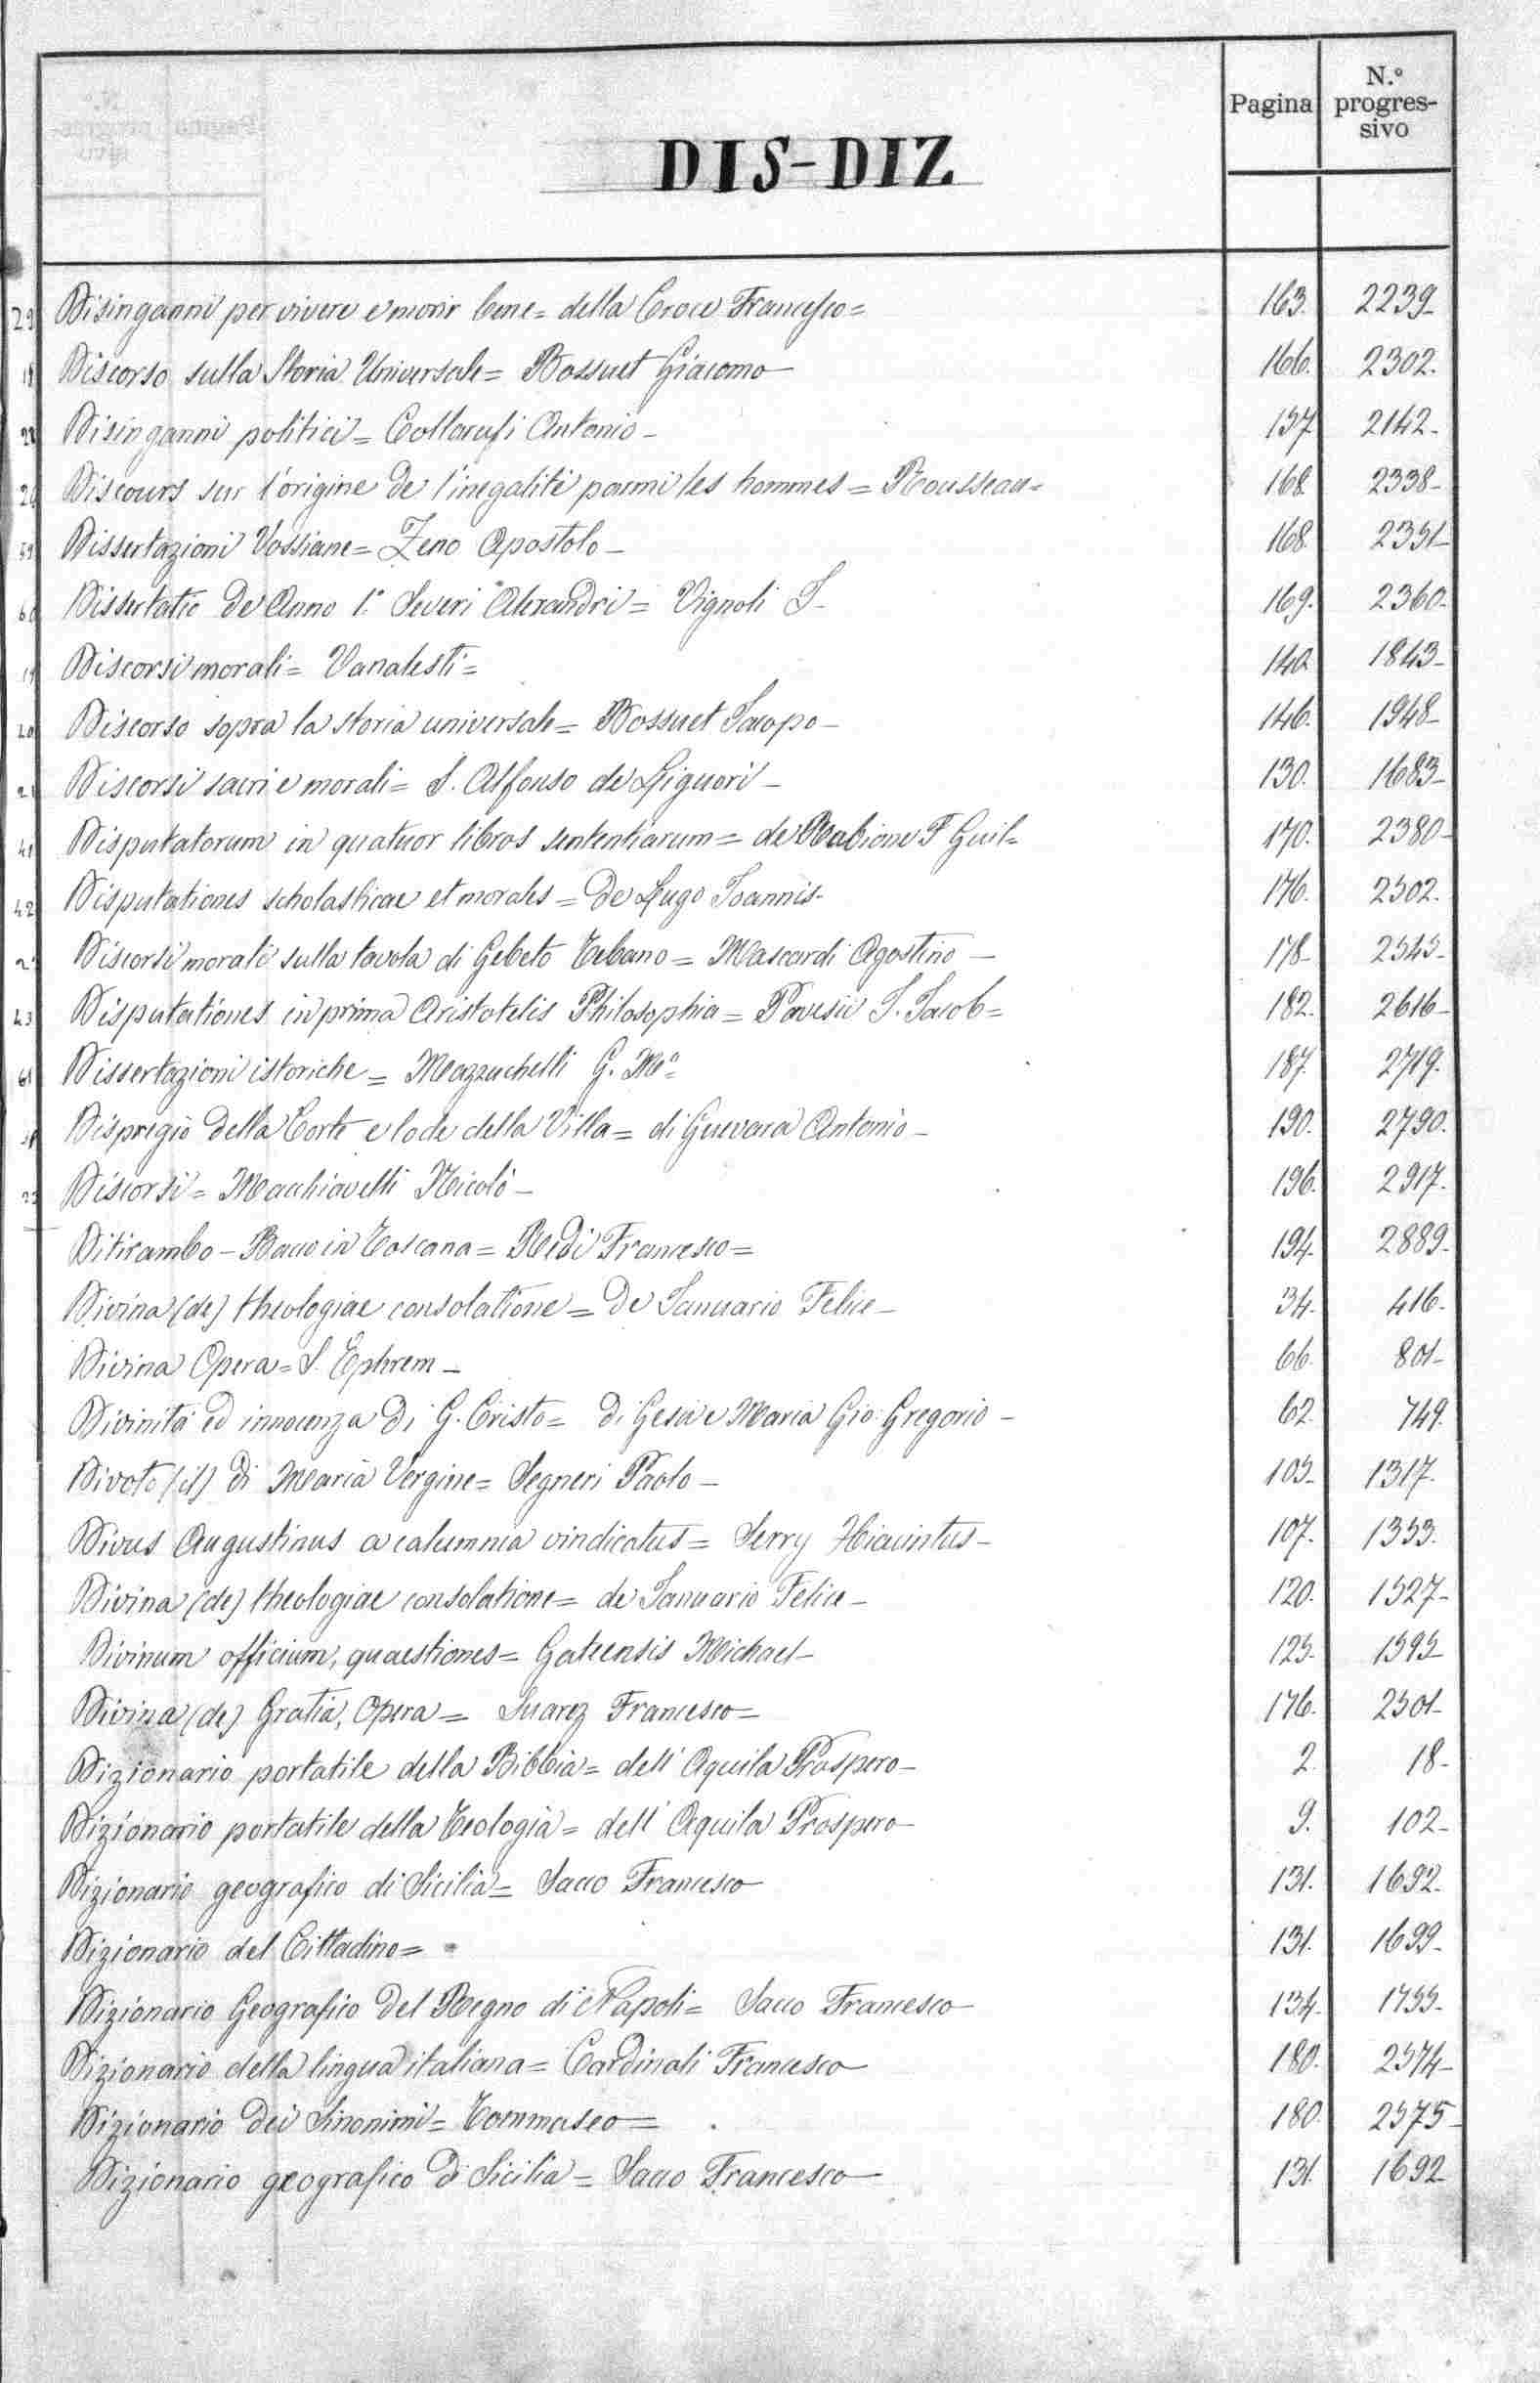 Pagina
N.º
progres-
sivo
DIS-DIZ
29 Disinganni per vivere e morir bene= della Croce Francesco= 163. 2239-
18 Discorso sulla Storia Universale= Bossuet Giacomo- 166. 2302.
Disinganni politici= Antonio- 137 2142-
Discours sur l'origine de l'inegalité parmi les hommes= Rousseau= 168 2338-
59 Dissertazioni Vossiane= Zeno Apostolo- 168. 2351-
60 Dissertatio de Anno 1º Severi Alexandri= Vignoli J- 169. 2360-
19 Discorsi morali= Vanalesti= 140. 1843-
20 Discorso sopra la storia universale= Bossuet Jacopo- 146. 1948-
21 Discorsi sacri e morali= S. Alfonso de Liguori- 130. 1683-
41 Disputatorum in quatuor libros sententiarum= de F Guil= 170. 2380-
42 Disputationes scholasticae et morales= De Lugo Joannis- 176. 2502.
Discorsi morali sulla tavola di Gebeto Tebano= Mascardi Agostino- 178- 2545-
43 Disputationes in prima Aristotelis Philosophia= J. Jacob= 182. 2616-
61 Dissertazioni istoriche= Mazzuchelli G. Mª= 187. 2719.
Dispregio della Corte e lode della Villa= di Guevara Antonio- 190. 2790.
Discorsi= Macchiavelli Nicolò- 196. 2917.
Ditirambo- Bacco in Toscana= Redi Francesco= 194. 2889-
Divina (de) theologiae consolatione= De Januario Felice- 34. 416-
Divina Opera= S. Ephrem- 66. 801-
Divinità ed innocenza di G. Cristo= di Gesù e Maria Gio: Gregorio- 62. 749.
Divoto (il) di Maria Vergine= Segneri Paolo- 105- 1317.
Divus Augustinus a calumnia vindicatus= Serry Hiacintus- 107. 1353.
Divina (de) theologiae consolatione= de Januario Felice- 120. 1527-
Divinum officium, quaestiones= Michael- 125- 1595-
Divina (de) Gratia, Opera= Suarez Francesco= 176. 2501-
Dizionario portatile della Bibbia= dell'Aquila Prospero- 2. 18-
Dizionario portatile della Teologia= dell'Aquila Prospero- 9. 102-
Dizionario geografico di Sicilia= Sacco Francesco 131. 1692.
Dizionario del Cittadino= 131. 1699-
Dizionario Geografico del Regno di Napoli= Sacco Francesco- 134. 1755-
Dizionario della lingua italiana= Cardinali Francesco 180. 2574-
Dizionario dei Sinonimi= Tommaseo= 180. 2575-
Dizionario geografico di Sicilia= Sacco Francesco- 131. 1692